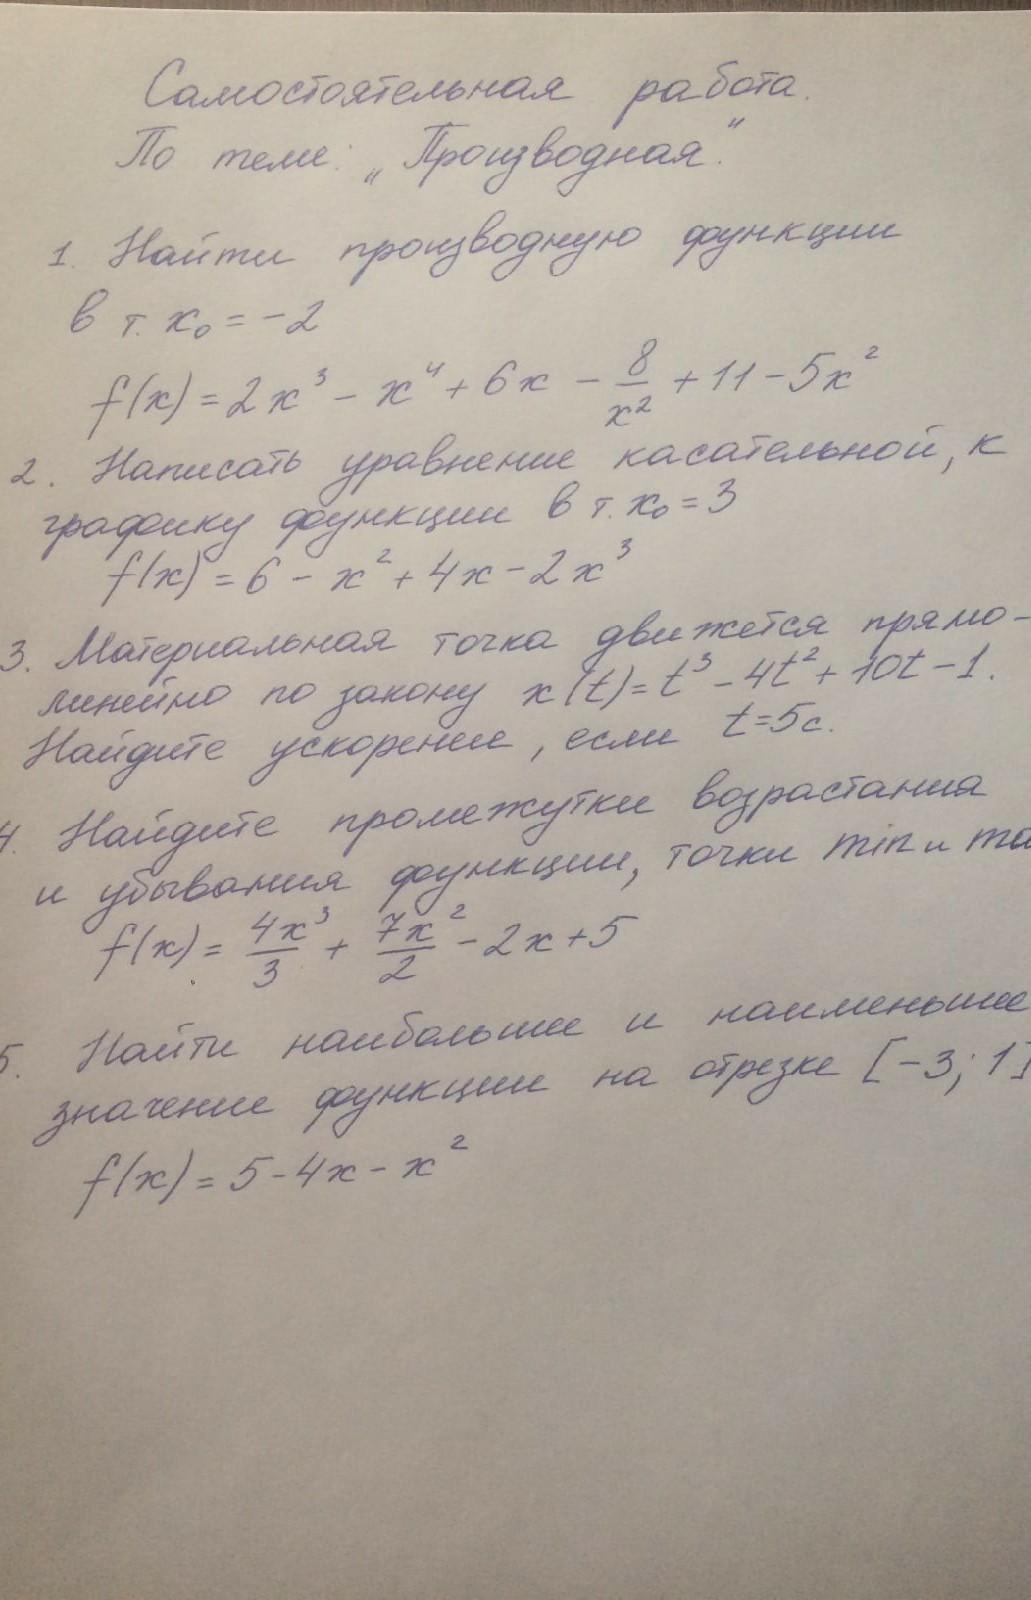 Самостоятельная работа.
По теме: „Производная."
1. Найти производную функции
в т. x₀ = -2
f(x) = 2x³ - x⁴ + 6x - 8/x² + 11 - 5x²
2. Написать уравнение касательной, к
графику функции в т. x₀ = 3
f(x) = 6 - x² + 4x - 2x³
3. Материальная точка движется прямо-
линейно по закону x(t) = t³ - 4t² + 10t - 1.
Найдите ускорение, если t = 5с.
4. Найдите промежутки возрастания
и убывания функции, точки min и ma
f(x) = 4x³/3 + 7x²/2 - 2x + 5
5. Найти наибольшее и наименьшее
значение функции на отрезке [-3; 1]
f(x) = 5 - 4x - x²